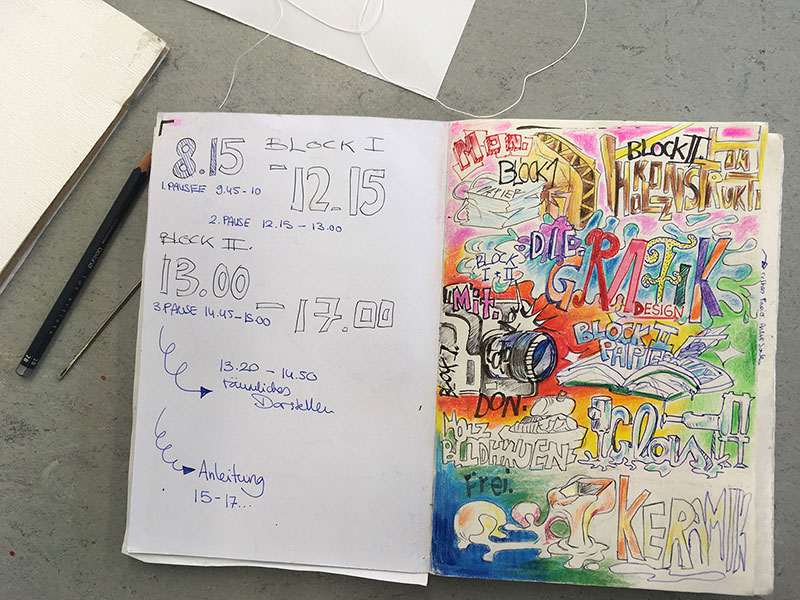 8.15 BLOCK I
– 12.15
1. PAUSEE 9.45 – 10
2. PAUSE 12.15 – 13.00
BLOCK II.
13.00
– 17.00
3. PAUSE 14.45 – 15.00
13.20 – 14.50
räumliches
Darstellen
Anleitung
15 – 17...
Mon.
BLOCK 1
PAPIER
BLOCK II.
HOLZ
KONSTRUKTION
DIE.
BLOCK
I + II
GRAFIK
DESIGN
Mit.
BLOCK I.
BLOCK II
PAPIER
DON.
HOLZ
BILDHAUEN
Glas
Frei.
KERAMIK